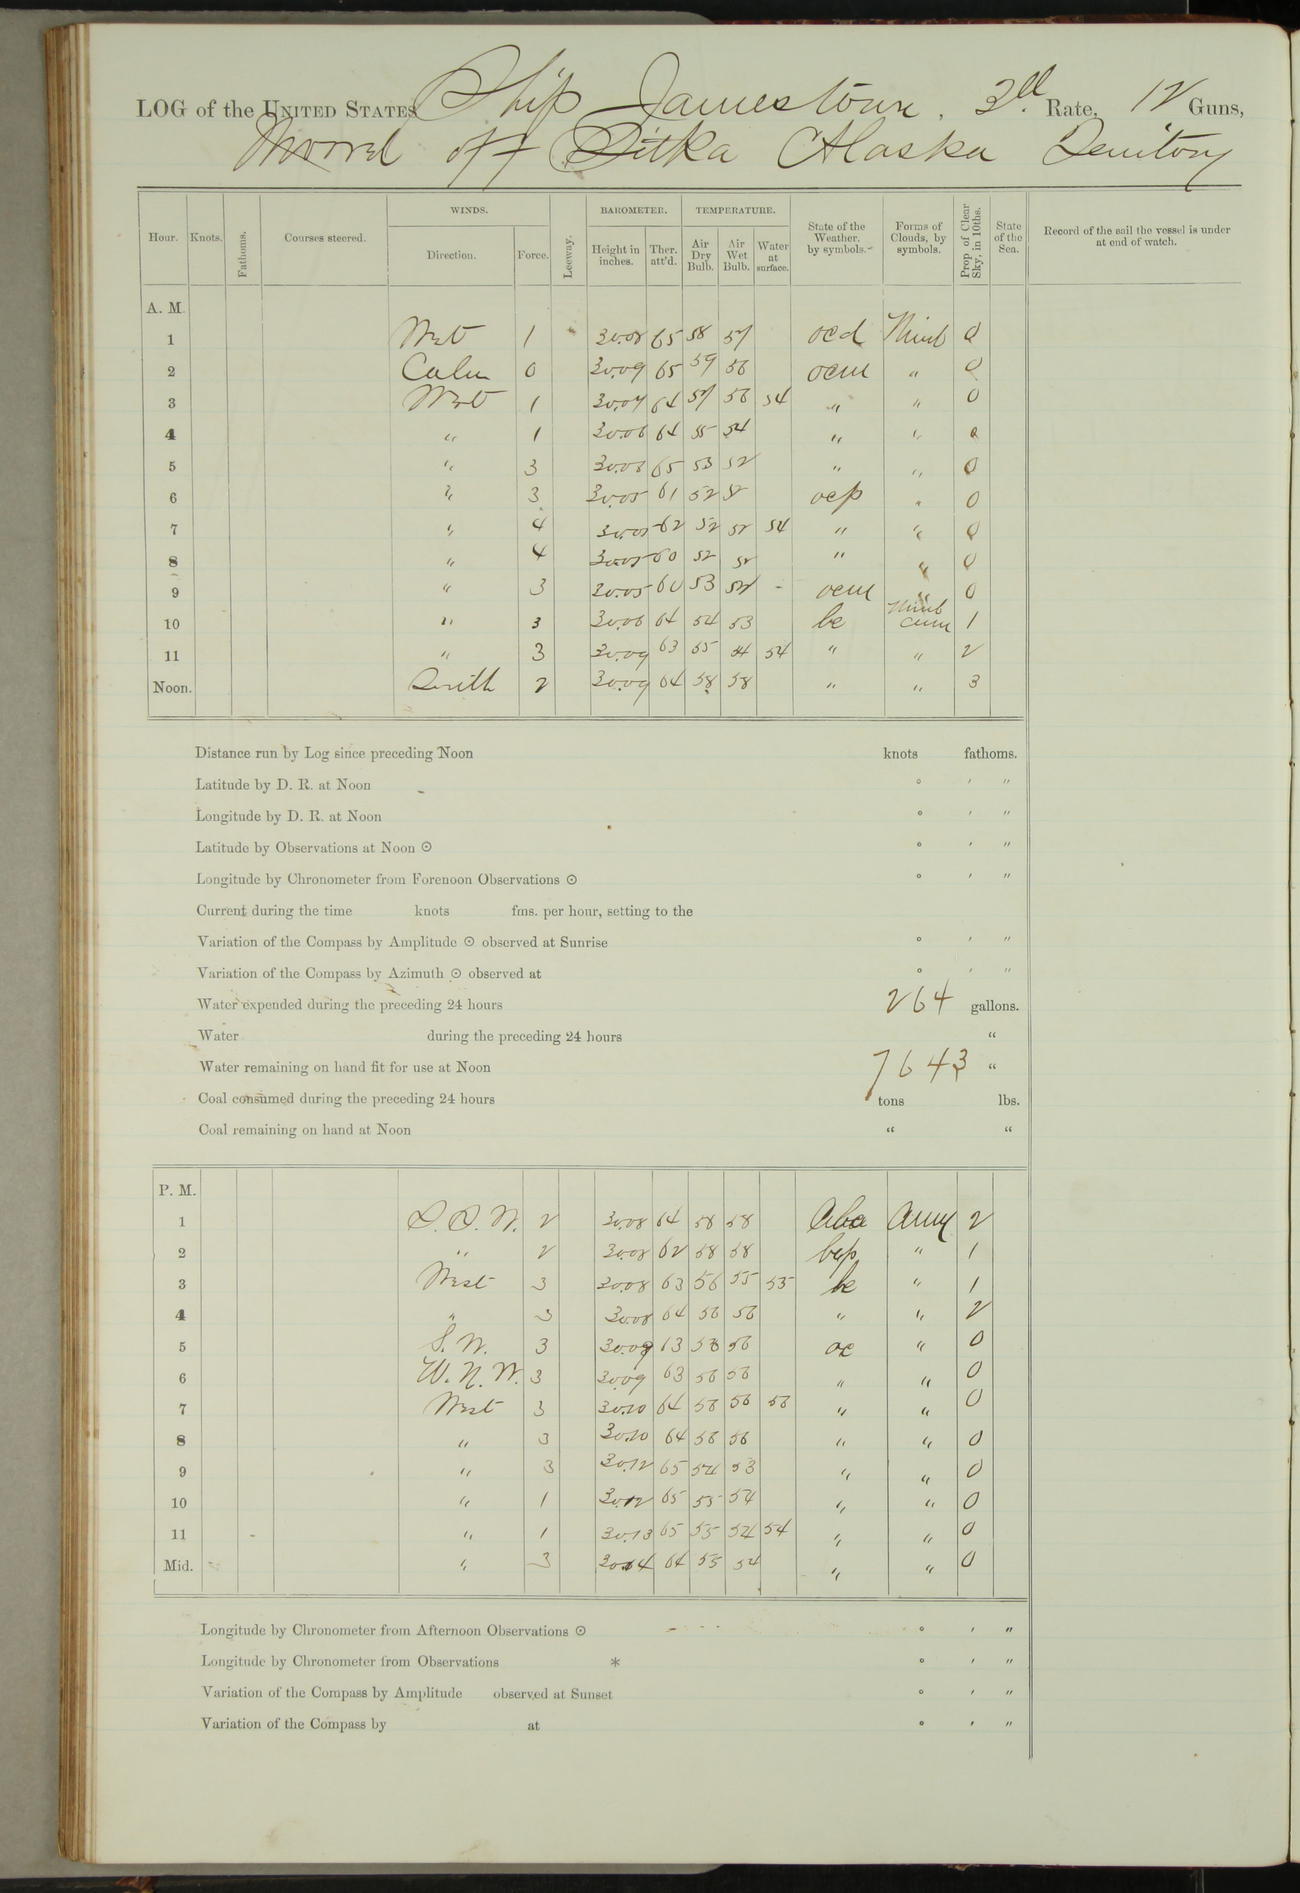 LOG of the UNITED STATES Ship Jamestown, 3d. Rate, 12 Guns,
Moored off Sitka Alaska Territory
Hour. Knots. Fathoms. Courses steered. WINDS. Direction. Force. Leeway. BAROMETER. Height in inches. Ther. att'd. TEMPERATURE. Air Dry Bulb. Air Wet Bulb. Water at surface. State of the Weather, by symbols. Forms of Clouds, by symbols. Prop. of Clear Sky, in 10ths. State of the Sea. Record of the sail the vessel is under at end of watch.
A. M.
1 West 1 30.08 65 58 57 ocd Nimb 0
2 Calm 0 30.09 65 59 56 ocm " 0
3 West 1 30.07 64 57 56 54 " " 0
4 " 1 30.06 64 55 54 " " 0
5 " 3 30.08 65 53 52 " " 0
6 " 3 30.05 61 52 52 ocp " 0
7 " 4 30.05 62 52 52 54 " " 0
8 " 4 30.05 60 52 52 " " 0
9 " 3 30.05 60 53 52 ocm " 0
10 " 3 30.06 64 54 53 bc Nimb Cum 1
11 " 3 30.09 63 55 54 54 " " 2
Noon. South 2 30.09 64 58 58 " " 3
Distance run by Log since preceding Noon knots fathoms.
Latitude by D. R. at Noon ° ' "
Longitude by D. R. at Noon ° ' "
Latitude by Observations at Noon ☉ ° ' "
Longitude by Chronometer from Forenoon Observations ☉ ° ' "
Current during the time knots fms. per hour, setting to the
Variation of the Compass by Amplitude ☉ observed at Sunrise ° ' "
Variation of the Compass by Azimuth ☉ observed at ° ' "
Water expended during the preceding 24 hours 264 gallons.
Water during the preceding 24 hours "
Water remaining on hand fit for use at Noon 7643 "
Coal consumed during the preceding 24 hours tons lbs.
Coal remaining on hand at Noon " "
P. M.
1 S.S.W. 2 30.08 64 58 58 Cum 2
2 " 2 30.08 62 58 58 bcp " 1
3 West 3 30.08 63 56 55 55 bc " 1
4 " 3 30.08 64 56 56 " " 2
5 S.W. 3 30.09 63 56 56 oc " 0
6 W.N.W. 3 30.09 63 56 56 " " 0
7 West 3 30.10 64 56 56 56 " " 0
8 " 3 30.10 64 56 56 " " 0
9 " 3 30.12 65 54 53 " " 0
10 " 1 30.12 65 55 54 " " 0
11 " 1 30.13 65 55 54 54 " " 0
Mid. " 3 30.14 64 55 54 " " 0
Longitude by Chronometer from Afternoon Observations ☉ ° ' "
Longitude by Chronometer from Observations * ° ' "
Variation of the Compass by Amplitude observed at Sunset ° ' "
Variation of the Compass by at ° ' "